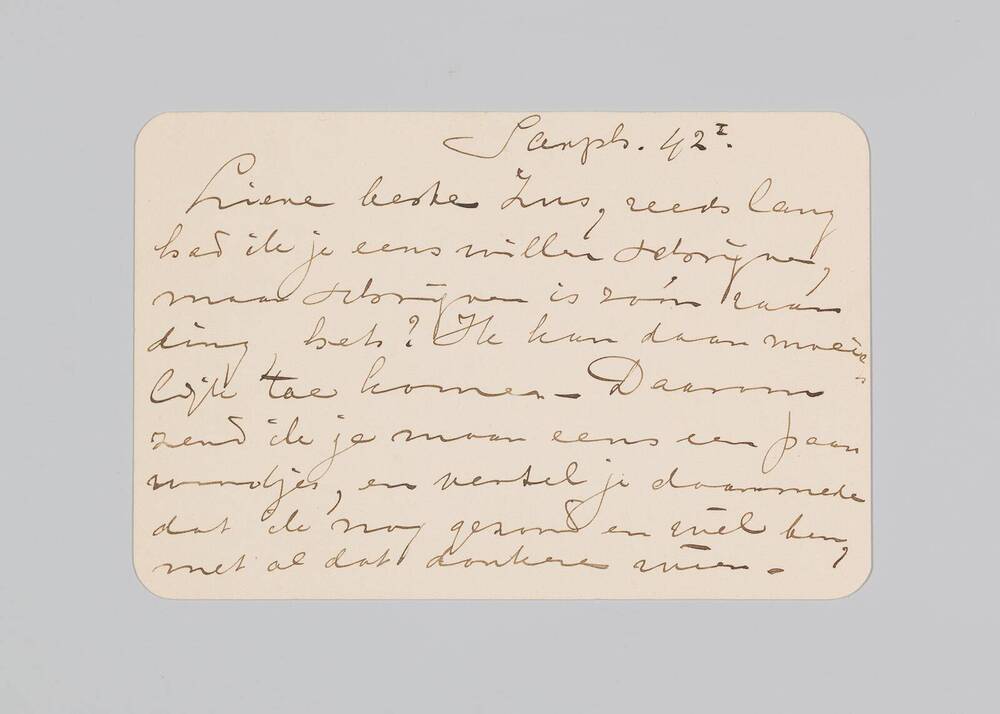 Sarph. 42I.
Lieve beste Zus, reeds lang
had ik je eens willen schrijven,
maar schrijven is zoo'n raar
ding, hè? Ik kan daar moei-
lijk toe komen — Daarom
zend ik je maar eens een paar
woordjes, en vertel je daarmede
dat ik nog gezond en wel ben,
met al dat donkere weer. —